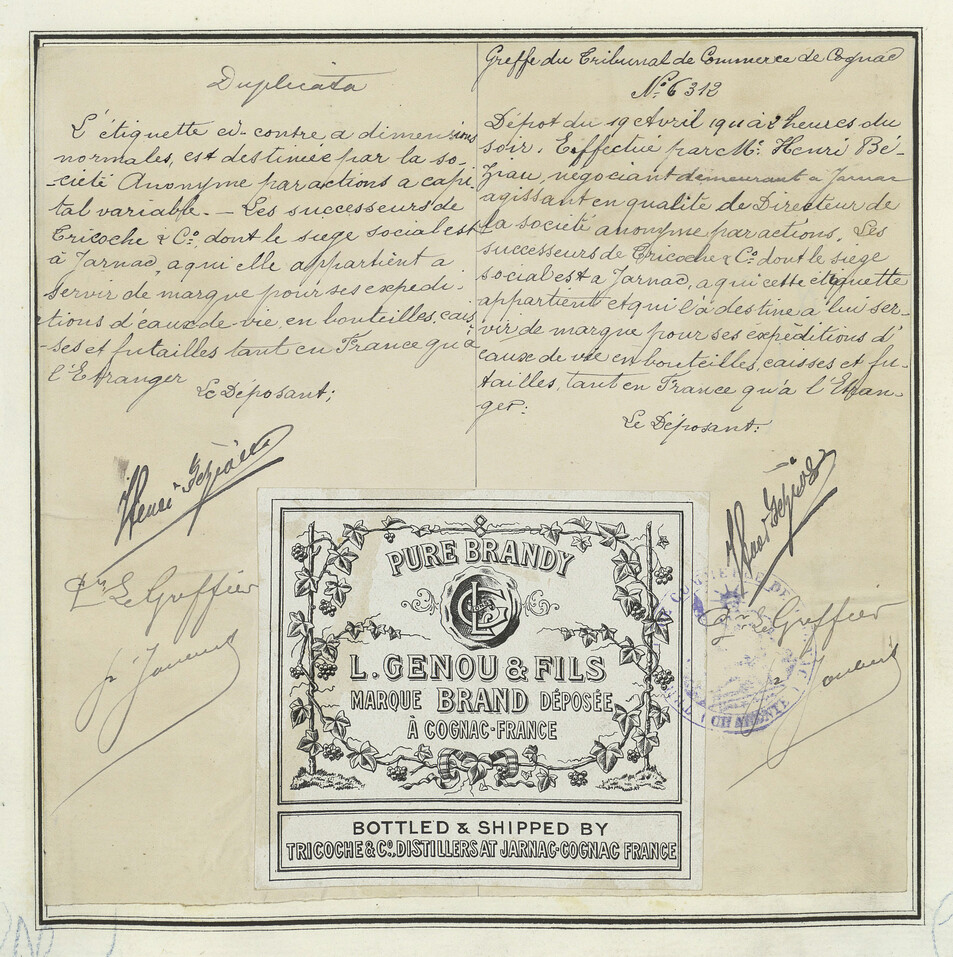 Duplicata
L'étiquette ci-contre a dimensions
normales, est destinée par la so-
ciété Anonyme par actions a capi-
tal variable. — Les successeurs de
Tricoche & Co. dont le siege social est
à Jarnac, a qui elle appartient a
servir de marque pour ses expedi-
tions d'eaux-de-vie, en bouteilles, cais
ses et futailles tant en France qu'à
l'Etranger
Le Déposant;
Henri Béziau
Pr Le Greffier
Greffe du Tribunal de Commerce de Cognac
No. 6312
Dépot du 19 Avril 1911 à 2 heures du
soir. Effectué par Mr. Henri Bé-
ziau, négociant demeurant a Jarnac
agissant en qualité de Directeur de
la société anonyme par actions. Les
successeurs de Tricoche & Co. dont le siege
social est a Jarnac, a qui cette étiquette
appartient et qui l'a destine a lui ser-
vir de marque pour ses expéditions d'
eaux de vie en bouteilles, caisses et fu-
tailles, tant en France qu'a l'Etran-
ger:
Le Déposant:
Henri Béziau
Pr Le Greffier
COMMERCE DE
(CHARENTE)
PURE BRANDY
LG
L. GENOU & FILS
MARQUE BRAND DÉPOSÉE
À COGNAC-FRANCE
BOTTLED & SHIPPED BY
TRICOCHE & Co. DISTILLERS AT JARNAC-COGNAC FRANCE